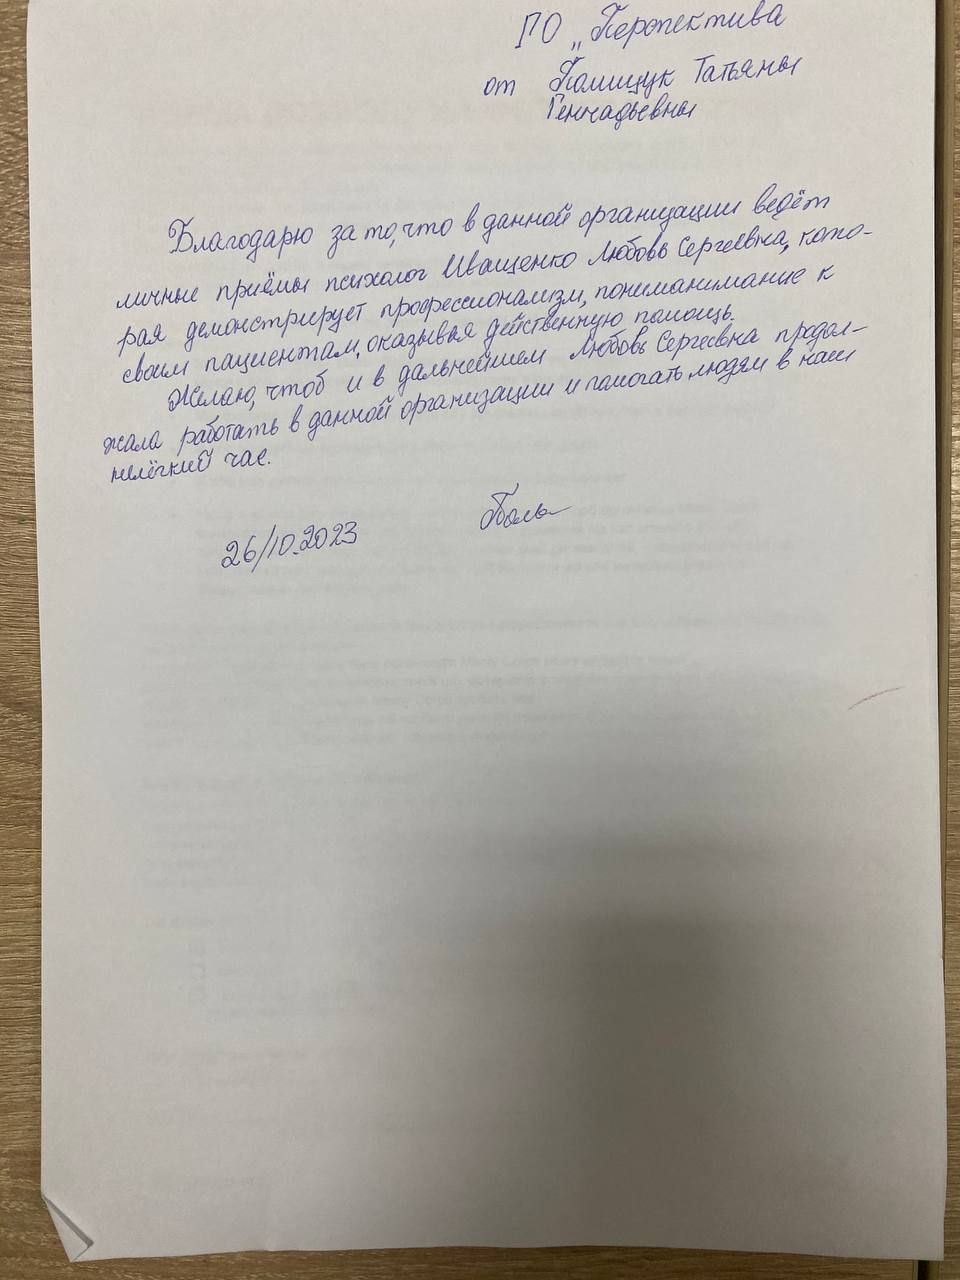 ГО „Перспектива
от Полищук Татьяны
Геннадьевны
Благодарю за то, что в данной организации ведёт
личные приёмы психолог Иващенко Любовь Сергеевна, кото-
рая демонстрирует профессионализм, пониманимание к
своим пациентам, оказывая действенную помощь.
Желаю, чтоб и в дальнейшем Любовь Сергеевна продол-
жала работать в данной организации и помогать людям в наш
нелёгкий час.
26/10.2023